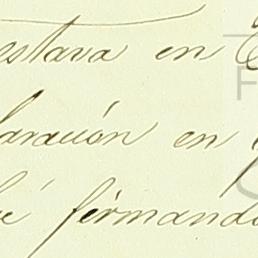 estava en
laración en
fírmando